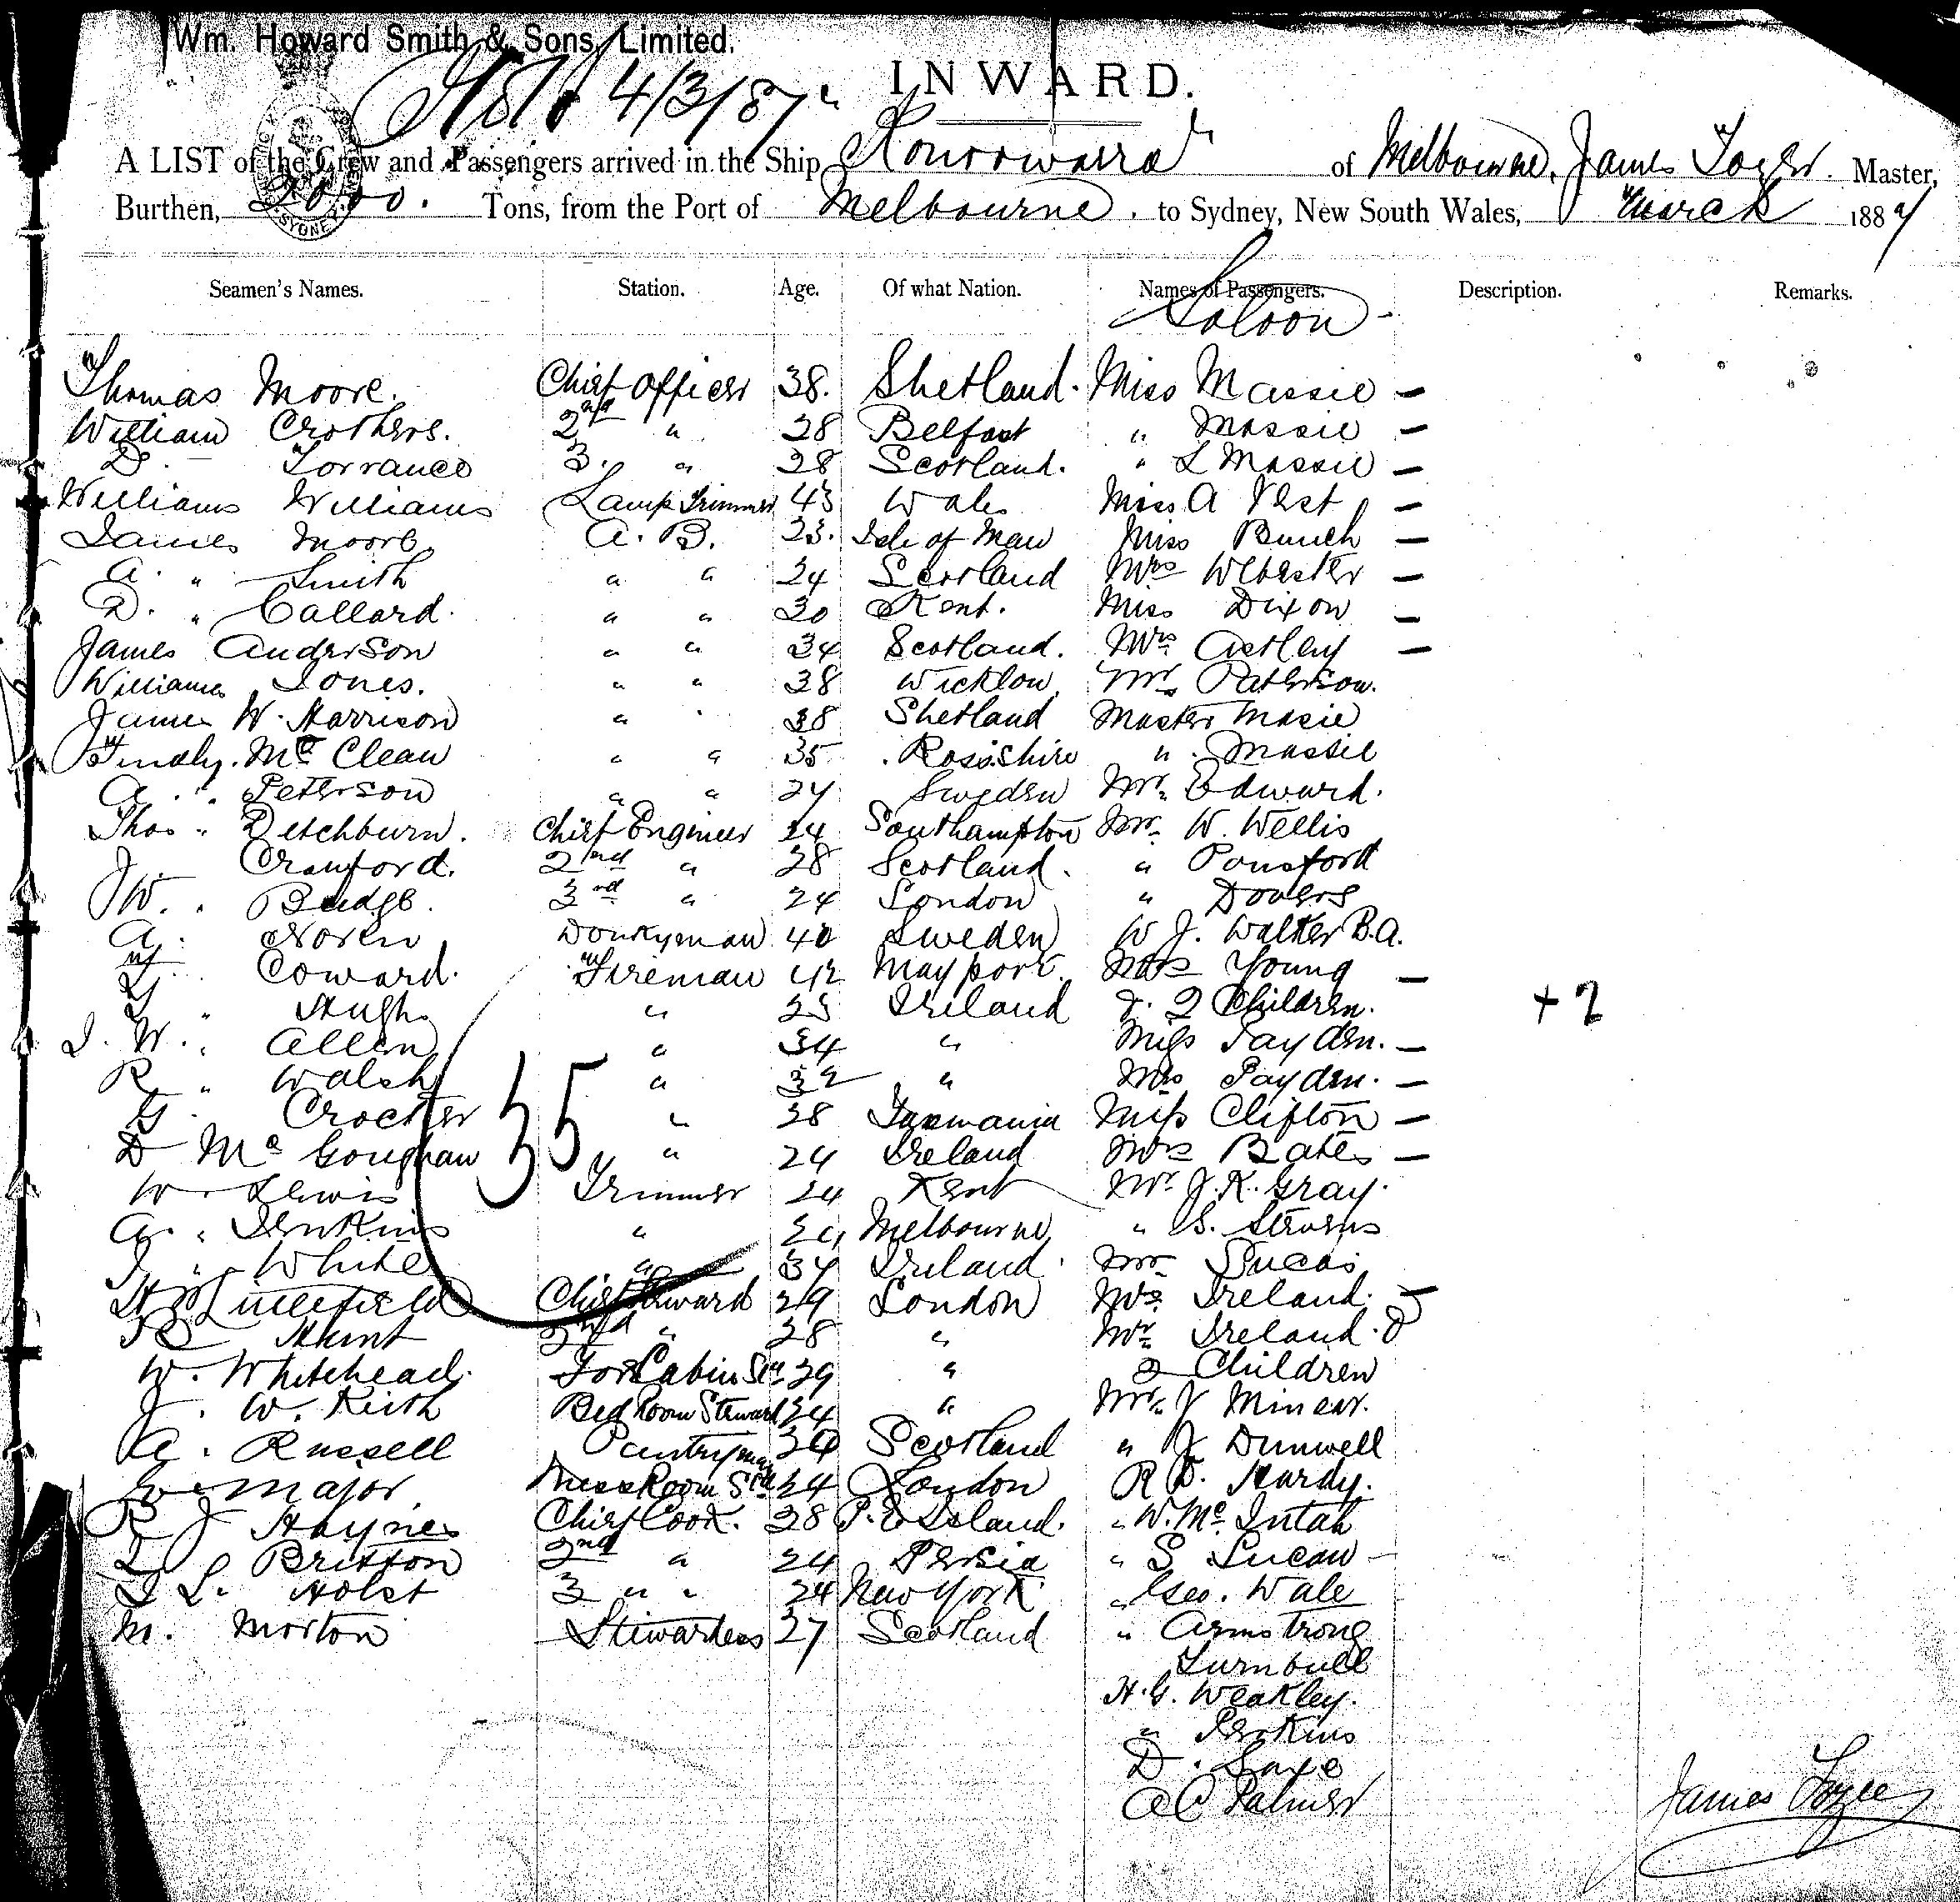 Wm. Howard Smith & Sons, Limited.
4/3/87
INWARD.
A LIST of the Crew and Passengers arrived in the Ship Konoowarra of Melbourne, James Tozer. Master,
Burthen, 2000. Tons, from the Port of Melbourne. to Sydney, New South Wales, March 1887
Seamen's Names. Station. Age. Of what Nation. Names of Passengers. Description. Remarks.
Saloon
Thomas Moore. Chief Officer 38. Shetland. Miss Massie —
William Crothers. 2nd " 28 Belfast " Massie —
D Torrance 3. " 28 Scotland. " L Massie —
Williams Williams Lamp Trimmer 43 Wales Miss A Vest —
James Moore A. B. 23. Isle of Man Miss Bunch —
A. " Smith " " 24 Scotland Mrs Webester —
D. " Callard. " " 30 Kent. Miss Dixon —
James Anderson " " 34 Scotland. Mrs Astley —
Williams Jones. " " 38 Wicklow Mr. Paterson.
James W. Harrison " " 38 Shetland Master Masie
Findly. Mc Clean " " 35 Rossshire " Massie
A. " Peterson " " 24 Sweden Mr. Edward.
Thos " Detchburn. Chief Engineer 34 Southampton Mr. W. Wellis
J Cranford. 2nd " 28 Scotland. " Ponsford
J W. " Budge. 3rd " 24 London " Dovers
A. Noren Donkyman 40 Sweden W J. Walker B.A.
Coward. Fireman 42 Mayport. Mrs Young —
" Hugh " 25 Ireland & 2 Children. + 2
J. W. " Allen " 34 " Miss Payden. —
R " Walsh " 32 " Mrs Payden. —
G. Crocker " 28 Tasmania Miss Clifton —
D Mc Goughan 35 " 24 Ireland Mrs Bates —
W. Lewis Trimmer 24 Kent Mr. J. K. Gray.
A. " Jenkins " Melbourne " S. Stevens
J " White " 34 Ireland. Mr Lucas
H Littlefield Chief Steward 29 London Mrs Ireland. —
Hunt 2nd " 28 " Mr Ireland. &
W. Whitehead. Fore Cabin Std 29 " 2 Children
J. W. Keith Bed Room Steward 24 " Mr. J Minear.
A. Russell Pantryman 34 Scotland " J Dunwell
G. Major Mess Room Std 24 London R D. Hardy.
R J Haynes Chief Cook. 28 P. E Island. " W. Mc Intah
Britton 2nd " 24 Persia " S Lucan —
J L. Holst 3 " " 24 New York " Geo. Wale
M. Morton Stewardess 27 Scotland " Armstrong
Turnbull
H. G. Weakley.
" Perkins
D. Saxe
A C Palmer
James Tozer